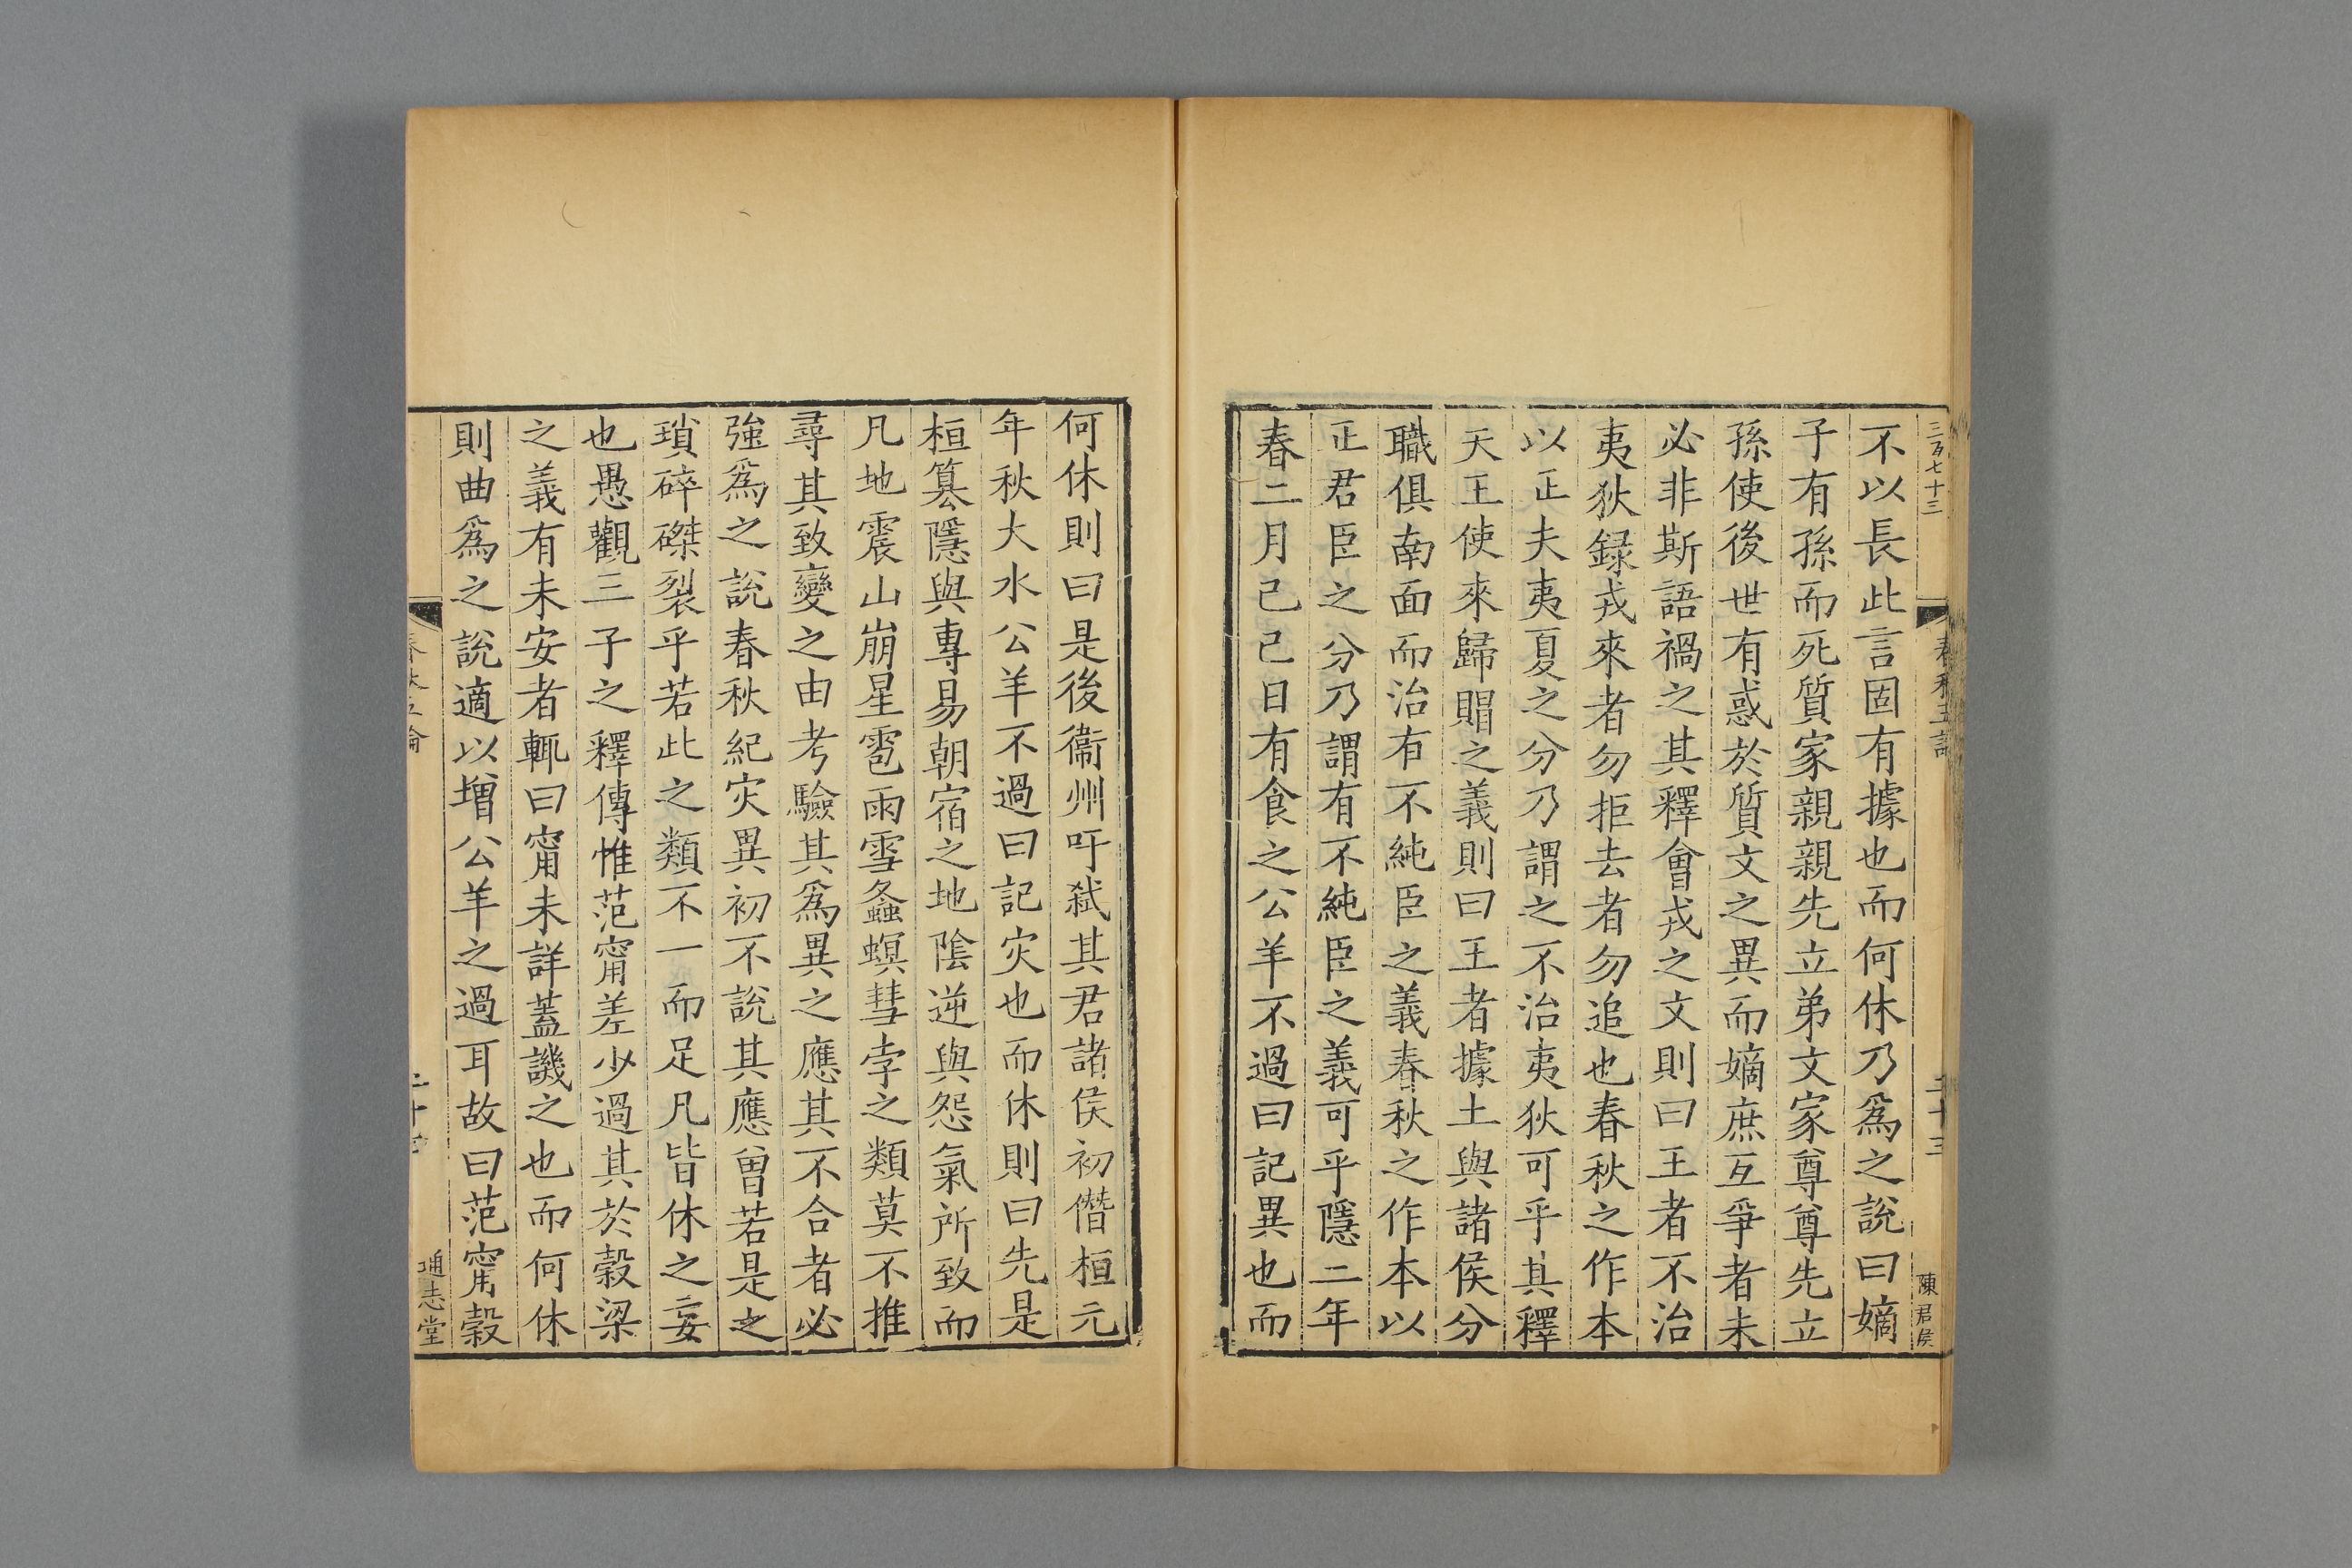 三百七十三
春秋五論
二十三
陳君侯
不以長此言固有據也而何休乃爲之說曰嫡
子有孫而死質家親親先立弟文家尊尊先立
孫使後世有惑於質文之異而嫡庶互爭者未
必非斯語禍之其釋會戎之文則曰王者不治
夷狄録戎來者勿拒去者勿追也春秋之作本
以正夫夷夏之分乃謂之不治夷狄可乎其釋
天王使來歸賵之義則曰王者據土與諸侯分
職俱南面而治有不純臣之義春秋之作本以
正君臣之分乃謂有不純臣之義可乎隱三年
春二月己巳日有食之公羊不過曰記異也而
何休則曰是後衞州吁弑其君諸侯初僣桓元
年秋大水公羊不過曰記灾也而休則曰先是
桓簒隱與專易朝宿之地陰逆與怨氣所致而
凡地震山崩星雹雨雪螽螟彗孛之類莫不推
尋其致變之由考驗其爲異之應其不合者必
強爲之說春秋紀灾異初不說其應曾若是之
瑣碎磔裂乎若此之類不一而足凡皆休之妄
也愚觀三子之釋傳惟范甯差少過其於穀梁
之義有未安者輒曰甯未詳蓋譏之也而何休
則曲爲之說適以增公羊之過耳故曰范甯穀
春秋五論
通志堂